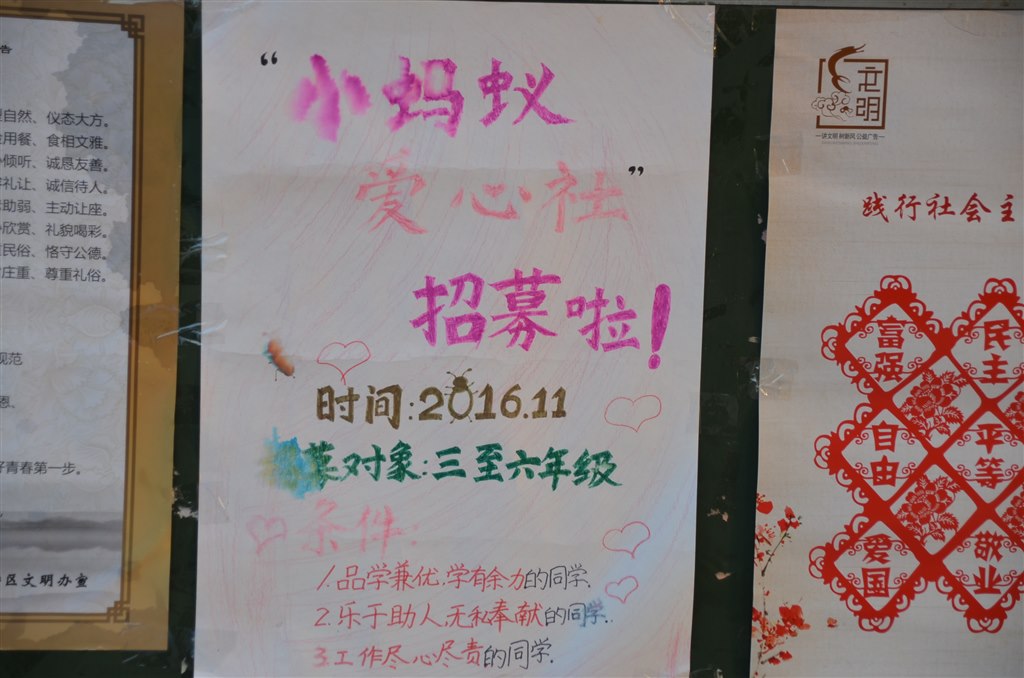 告
自然、仪态大方。
用餐、食相文雅。
倾听、诚恳友善。
礼让、诚信待人。
助弱、主动让座。
欣赏、礼貌喝彩。
民俗、恪守公德。
庄重、尊重礼俗。
规范
恩、
好青春第一步。
区文明办宣
“小蚂蚁
爱心社”
招募啦!
时间:2016.11
招募对象:三至六年级
条件:
1.品学兼优.学有余力的同学.
2.乐于助人,无私奉献的同学.
3.工作尽心尽责的同学.
文明
讲文明 树新风 公益广告
践行社会主
富强
民主
自由
平等
爱国
敬业